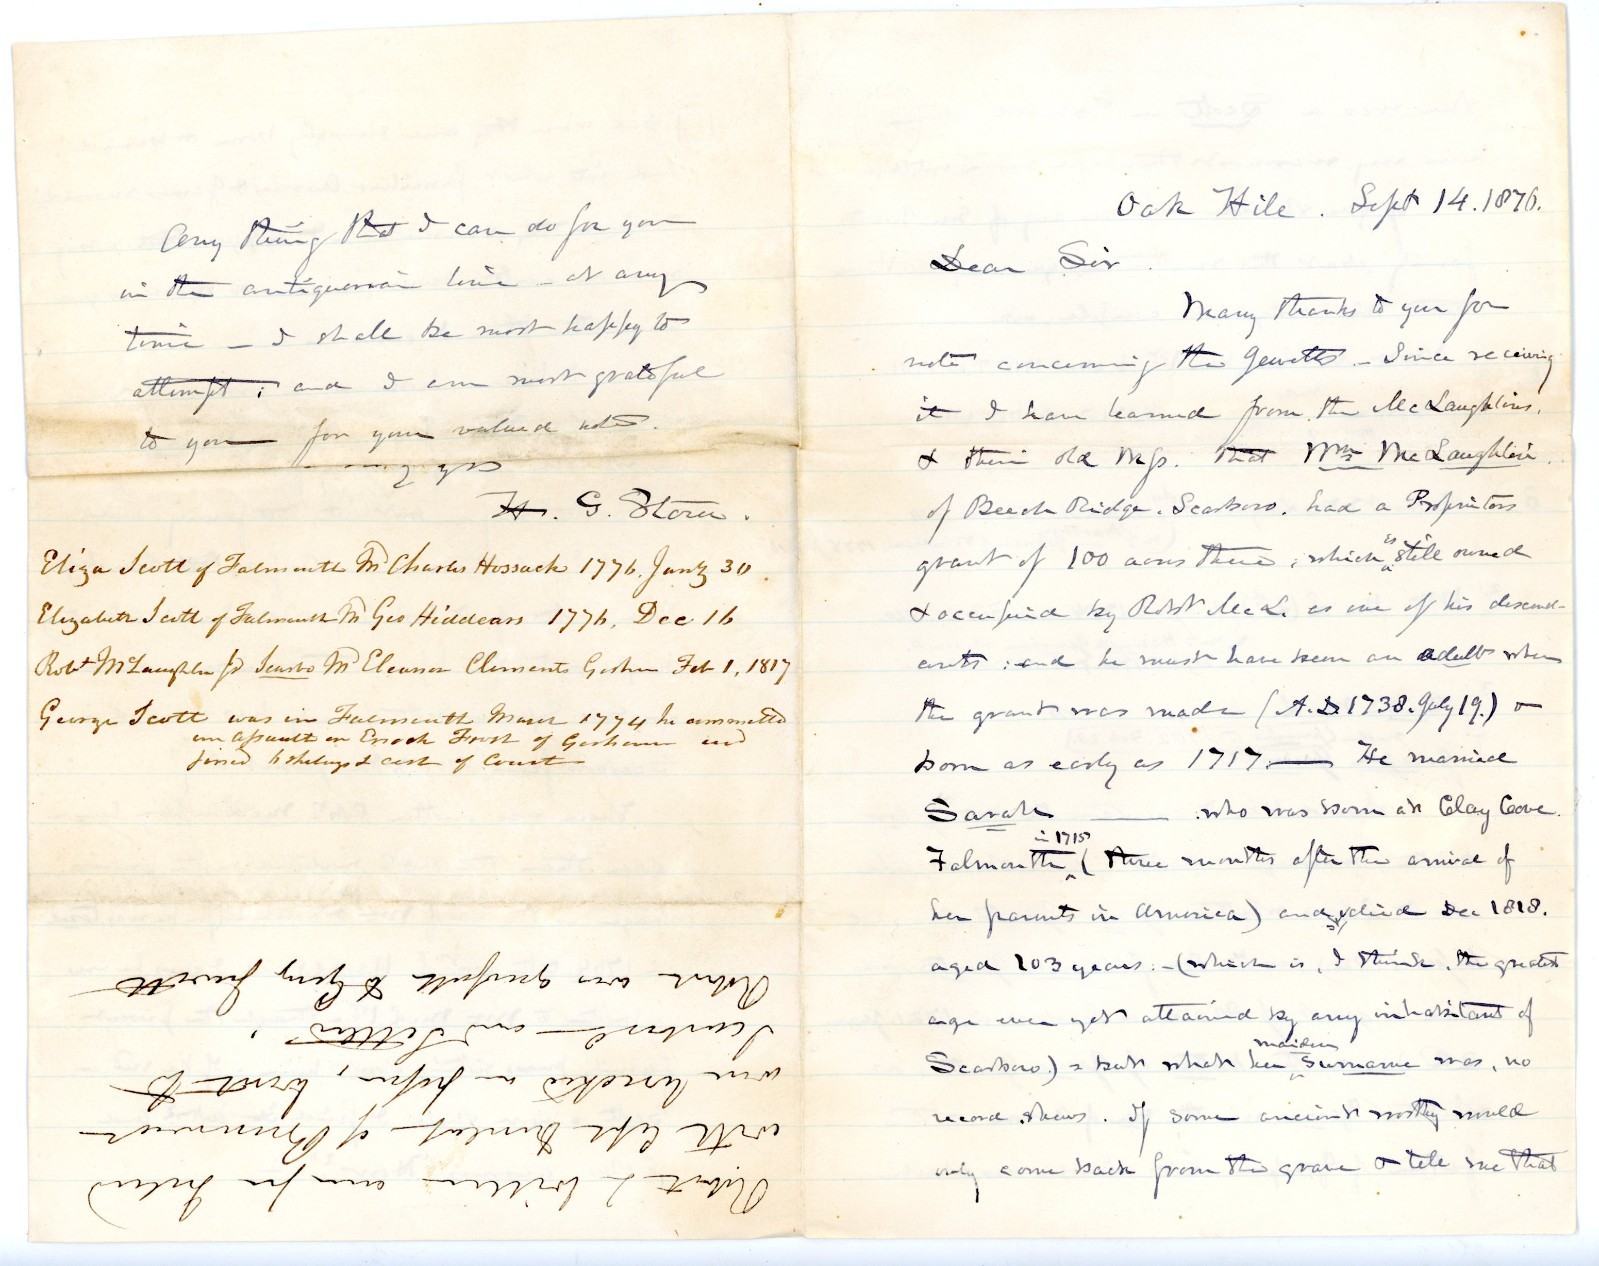 Oak Hill. Sept 14. 1876.
Dear Sir.
Many thanks to you for
note concerning the Jewetts – Since receiving
it I have learned from the McLaughlins,
& their old Mss. that Wm McLaughlin
of Beech Ridge, Scarboro, had a Proprietors
grant of 100 acres there; which is still owned
& occupied by Robt McL. as one of his descend-
ants: and he must have been an adult when
the grant was made (A.D. 1738. July 19.) &
born as early as 1717. — He married
Sarah —— who was born at Clay Cove
Falmouth in 1715 (three months after the arrival of
her parents in America) and died Dec 1818.
aged 103 years: – (which is, I think, the greatest
age ever yet attained by any inhabitant of
Scarboro) – but what her maiden surname was, no
record shows. If some ancient would
only come back from the grave & tell me that
Any thing that I can do for you
in the antiquarian line – at any
time – I shall be most happy to
attempt; and I am most grateful
to you for your valued note.
G. Storer.
Eliza Scott of Falmouth M Charles Hossack 1776. Jany 30
Elizabeth Scott of Falmouth M Geo Hiddears 1776. Dec 16
Robt McLaughlin Jr Scarbo M Eleanor Clements Gorham Feb 1, 1817
George Scott was in Falmouth March 1774 he committed
an assault on Enoch Frost of Gorham and
fined 6 shillings & cost of Court
Robert & William came from Ireland
with Capt Dunlap of Brunswick
were wrecked on , went to
Scarboro – and Settled.
Robert was grandfath to Geny Jewett